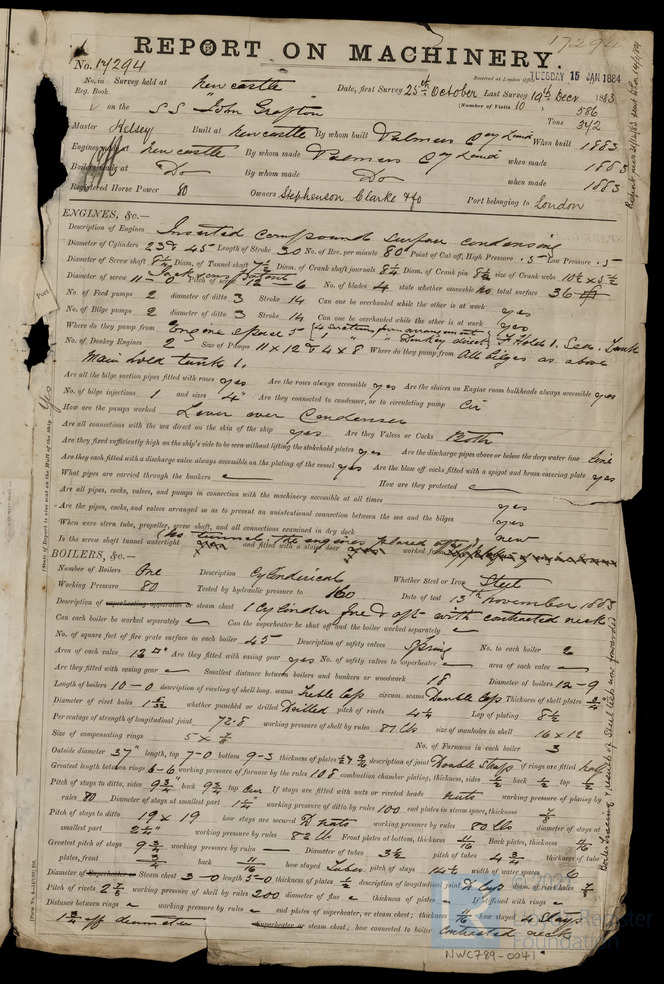 17294
REPORT ON MACHINERY.
No. 17294
Received at London Office TUESDAY 15 JAN 1884
No. in Reg. Book. Survey held at Newcastle Date, first Survey 25th October Last Survey 19th Decr 1883
(Number of Visits 10)
on the SS "John Grafton" Tons 586 342
Master Kelsey Built at Newcastle By whom built Palmers Coy Limd When built 1883
Engines made at Newcastle By whom made Palmers Coy Limd when made 1883
Boilers made at Do By whom made Do when made 1883
Registered Horse Power 80 Owners Stephenson Clarke & Co Port belonging to London
ENGINES, &c.—
Description of Engines Inverted compound surface condensing
Diameter of Cylinders 23 & 45 Length of Stroke 30 No. of Rev. per minute 80 Point of Cut off, High Pressure .5 Low Pressure .5
Diameter of Screw shaft 8 1/2 Diam. of Tunnel shaft 7 1/2 Diam. of Crank shaft journals 8 1/2 Diam. of Crank pin 8 1/2 size of Crank webs 10 1/2 x 5 1/2
Diameter of screw 11-0 Pitch of screw 12-6 No. of blades 4 state whether moveable No total surface 36
No. of Feed pumps 2 diameter of ditto 3 Stroke 14 Can one be overhauled while the other is at work yes
No. of Bilge pumps 2 diameter of ditto 3 Stroke 14 Can one be overhauled while the other is at work yes
Where do they pump from Engine space 5
No. of Donkey Engines 2 Size of Pumps 11 x 12 & 4 x 8 Where do they pump from All bilges as above
Main hold tank 1.
Are all the bilge suction pipes fitted with roses yes Are the roses always accessible yes Are the sluices on Engine room bulkheads always accessible yes
No. of bilge injections 1 and sizes 4" Are they connected to condenser, or to circulating pump Cir
How are the pumps worked Lever over Condenser
Are all connections with the sea direct on the skin of the ship yes Are they Valves or Cocks Both
Are they fixed sufficiently high on the ship's side to be seen without lifting the stokehold plates yes Are the discharge pipes above or below the deep water line line
Are they each fitted with a discharge valve always accessible on the plating of the vessel yes Are the blow off cocks fitted with a spigot and brass covering plate yes
What pipes are carried through the bunkers — How are they protected —
Are all pipes, cocks, valves, and pumps in connection with the machinery accessible at all times yes
Are the pipes, cocks, valves arranged so as to prevent an unintentional connection between the sea and the bilges yes
When were stern tube, propeller, screw shaft, and all connections examined in dry dock new
Is the screw shaft tunnel watertight (No tunnel the engines placed aft) and fitted with a sluice door worked from
BOILERS, &c.—
Number of Boilers One Description Cylinderical Whether Steel or Iron Steel
Working Pressure 80 Tested by hydraulic pressure to 160 Date of test 13th November 1883
Description of superheating apparatus or steam chest 1 Cylinder fore & aft with contracted neck
Can each boiler be worked separately — Can the superheater be shut off and the boiler worked separately —
No. of square feet of fire grate surface in each boiler 45 Description of safety valves Spring No. to each boiler 2
Area of each valve 12 □" Are they fitted with easing gear yes No. of safety valves to superheater — area of each valve —
Are they fitted with easing gear — Smallest distance between boilers and bunkers or woodwork 18 Diameter of boilers 12-9
Length of boilers 10-0 description of riveting of shell long. seams Treble Lap circum. seams Double Lap Thickness of shell plates 3/4
Diameter of rivet holes 1 5/32 whether punched or drilled Drilled pitch of rivets 4 1/4 Lap of plating 8 1/2
Per centage of strength of longitudinal joint 72.8 working pressure of shell by rules 81 lb size of manholes in shell 16 x 12
Size of compensating rings 5 x 7/8 No. of Furnaces in each boiler 3
Outside diameter 37" length, top 7-0 bottom 9-3 thickness of plates description of joint Double Straps if rings are fitted half
Greatest length between rings 6-6 working pressure of furnace by the rules 108 combustion chamber plating, thickness, sides 1/2 back 1/2 top 1/2
Pitch of stays to ditto, sides 9 3/4" back 9 3/4 top If stays are fitted with nuts or riveted heads nuts working pressure of plating by
rules 80 Diameter of stays at smallest part 1 1/4" working pressure of ditto by rules 100 end plates in steam space, thickness
Pitch of stays to ditto 19 x 19 how stays are secured D nuts working pressure by rules 80 lbs diameter of stays at
smallest part 2 1/4" working pressure by rules 82 lb Front plates at bottom, thickness 11/16 Back plates, thickness
Greatest pitch of stays 9 3/4 working pressure by rules — Diameter of tubes 3 1/2 pitch of tubes 4 3/4 thickness of tube
plates, front back 11/16 how stayed Tubes pitch of stays 14 1/2 width of water spaces 6
Diameter of Superheater or Steam chest 3-0 length 5-0 thickness of plates description of longitudinal joint D Lap diam. of rivet holes
Pitch of rivets 2 7/8 working pressure of shell by rules 200 diameter of flue — thickness of plates — If stiffened with rings —
Distance between rings — working pressure by rules — end plates of superheater, or steam chest; thickness how stayed 4 Stays
1 3/4 eff diameter Superheater or steam chest; how connected to boiler Contracted neck
NWC789-0041
Lloyd's Register
Foundation